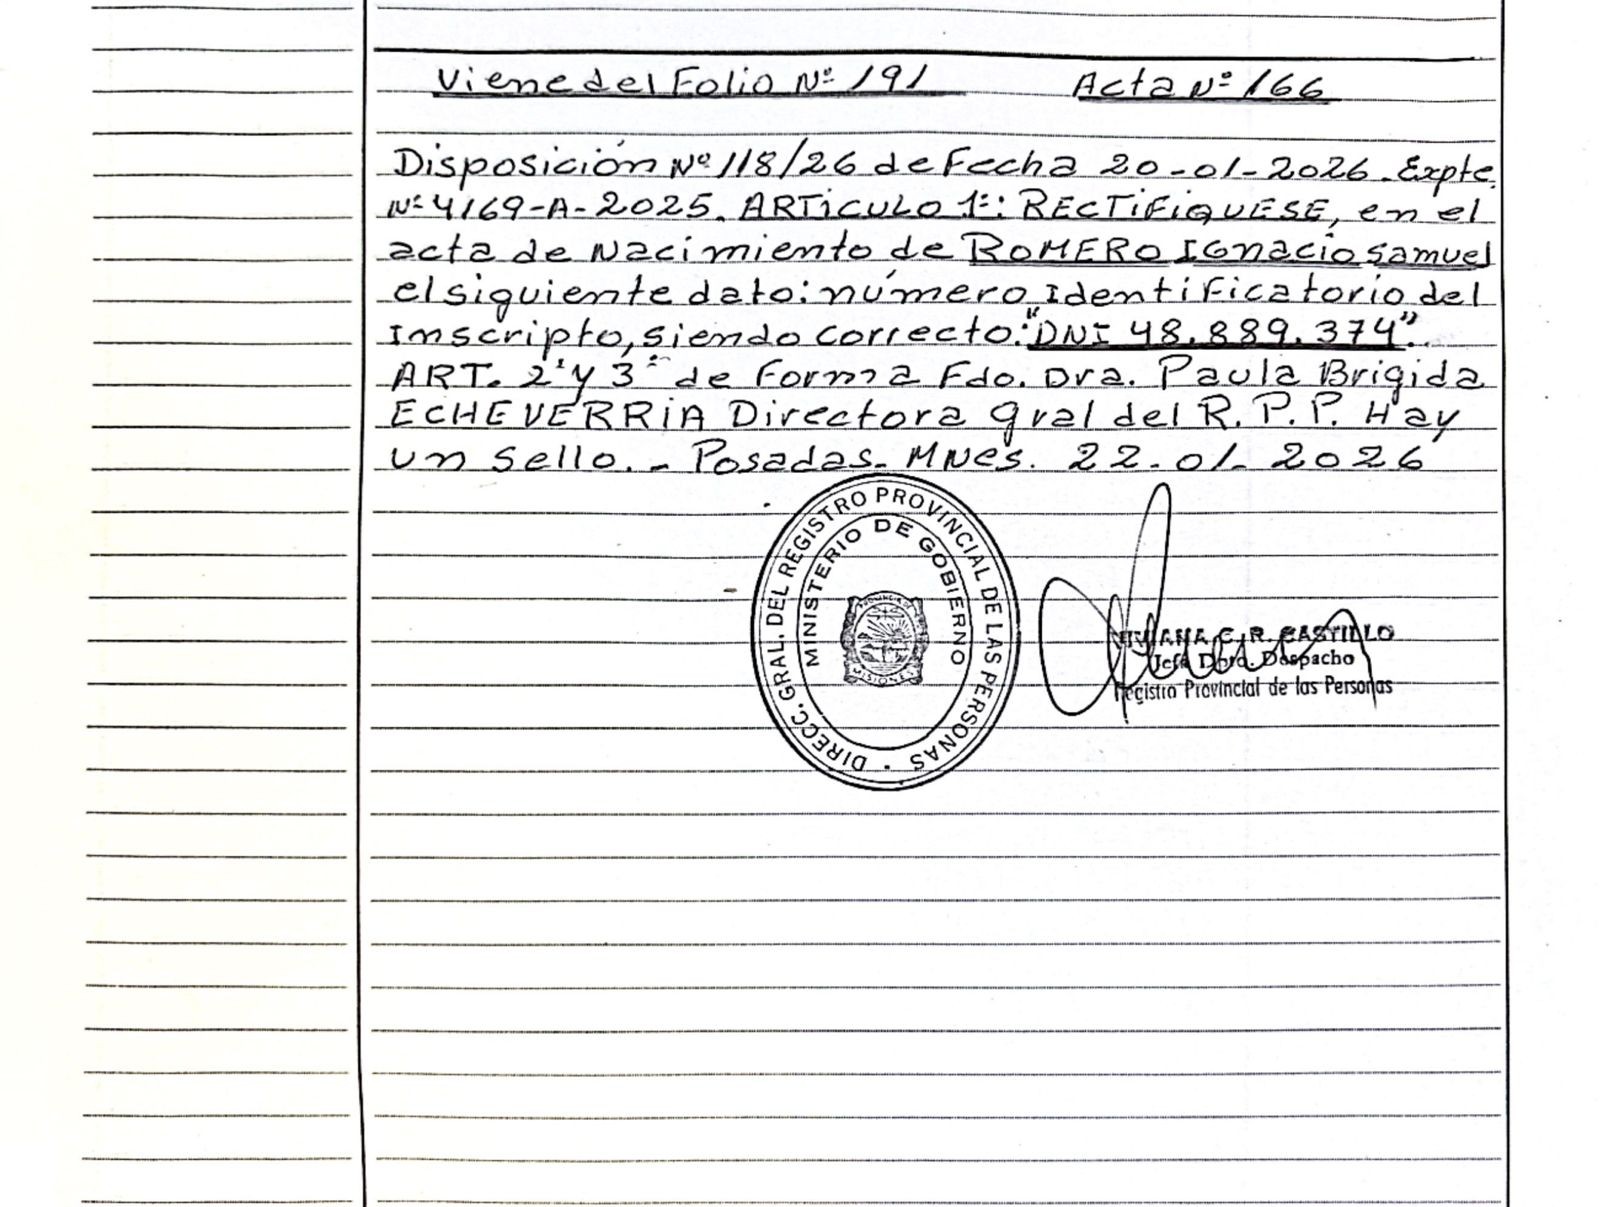 Viene del Folio Nº 191 Acta Nº 166
Disposición Nº 118/26 de Fecha 20-01-2026. Expte.
Nº 4169-A-2025. ARTICULO 1º: RECTIFIQUESE, en el
acta de Nacimiento de ROMERO Ignacio Samuel
el siguiente dato: número Identificatorio del
Inscripto, siendo correcto: "DNI 48.889.374".
ART. 2º y 3º de Forma Fdo. Dra. Paula Brigida
ECHEVERRIA Directora gral del R.P.P. Hay
un sello. - Posadas. MNes. 22-01-2026
DIRECC. GRAL. DEL REGISTRO PROVINCIAL DE LAS PERSONAS
MINISTERIO DE GOBIERNO
PROVINCIA DE
MISIONES
C. R. CASTILLO
Jefe Dpto. Despacho
Registro Provincial de las Personas